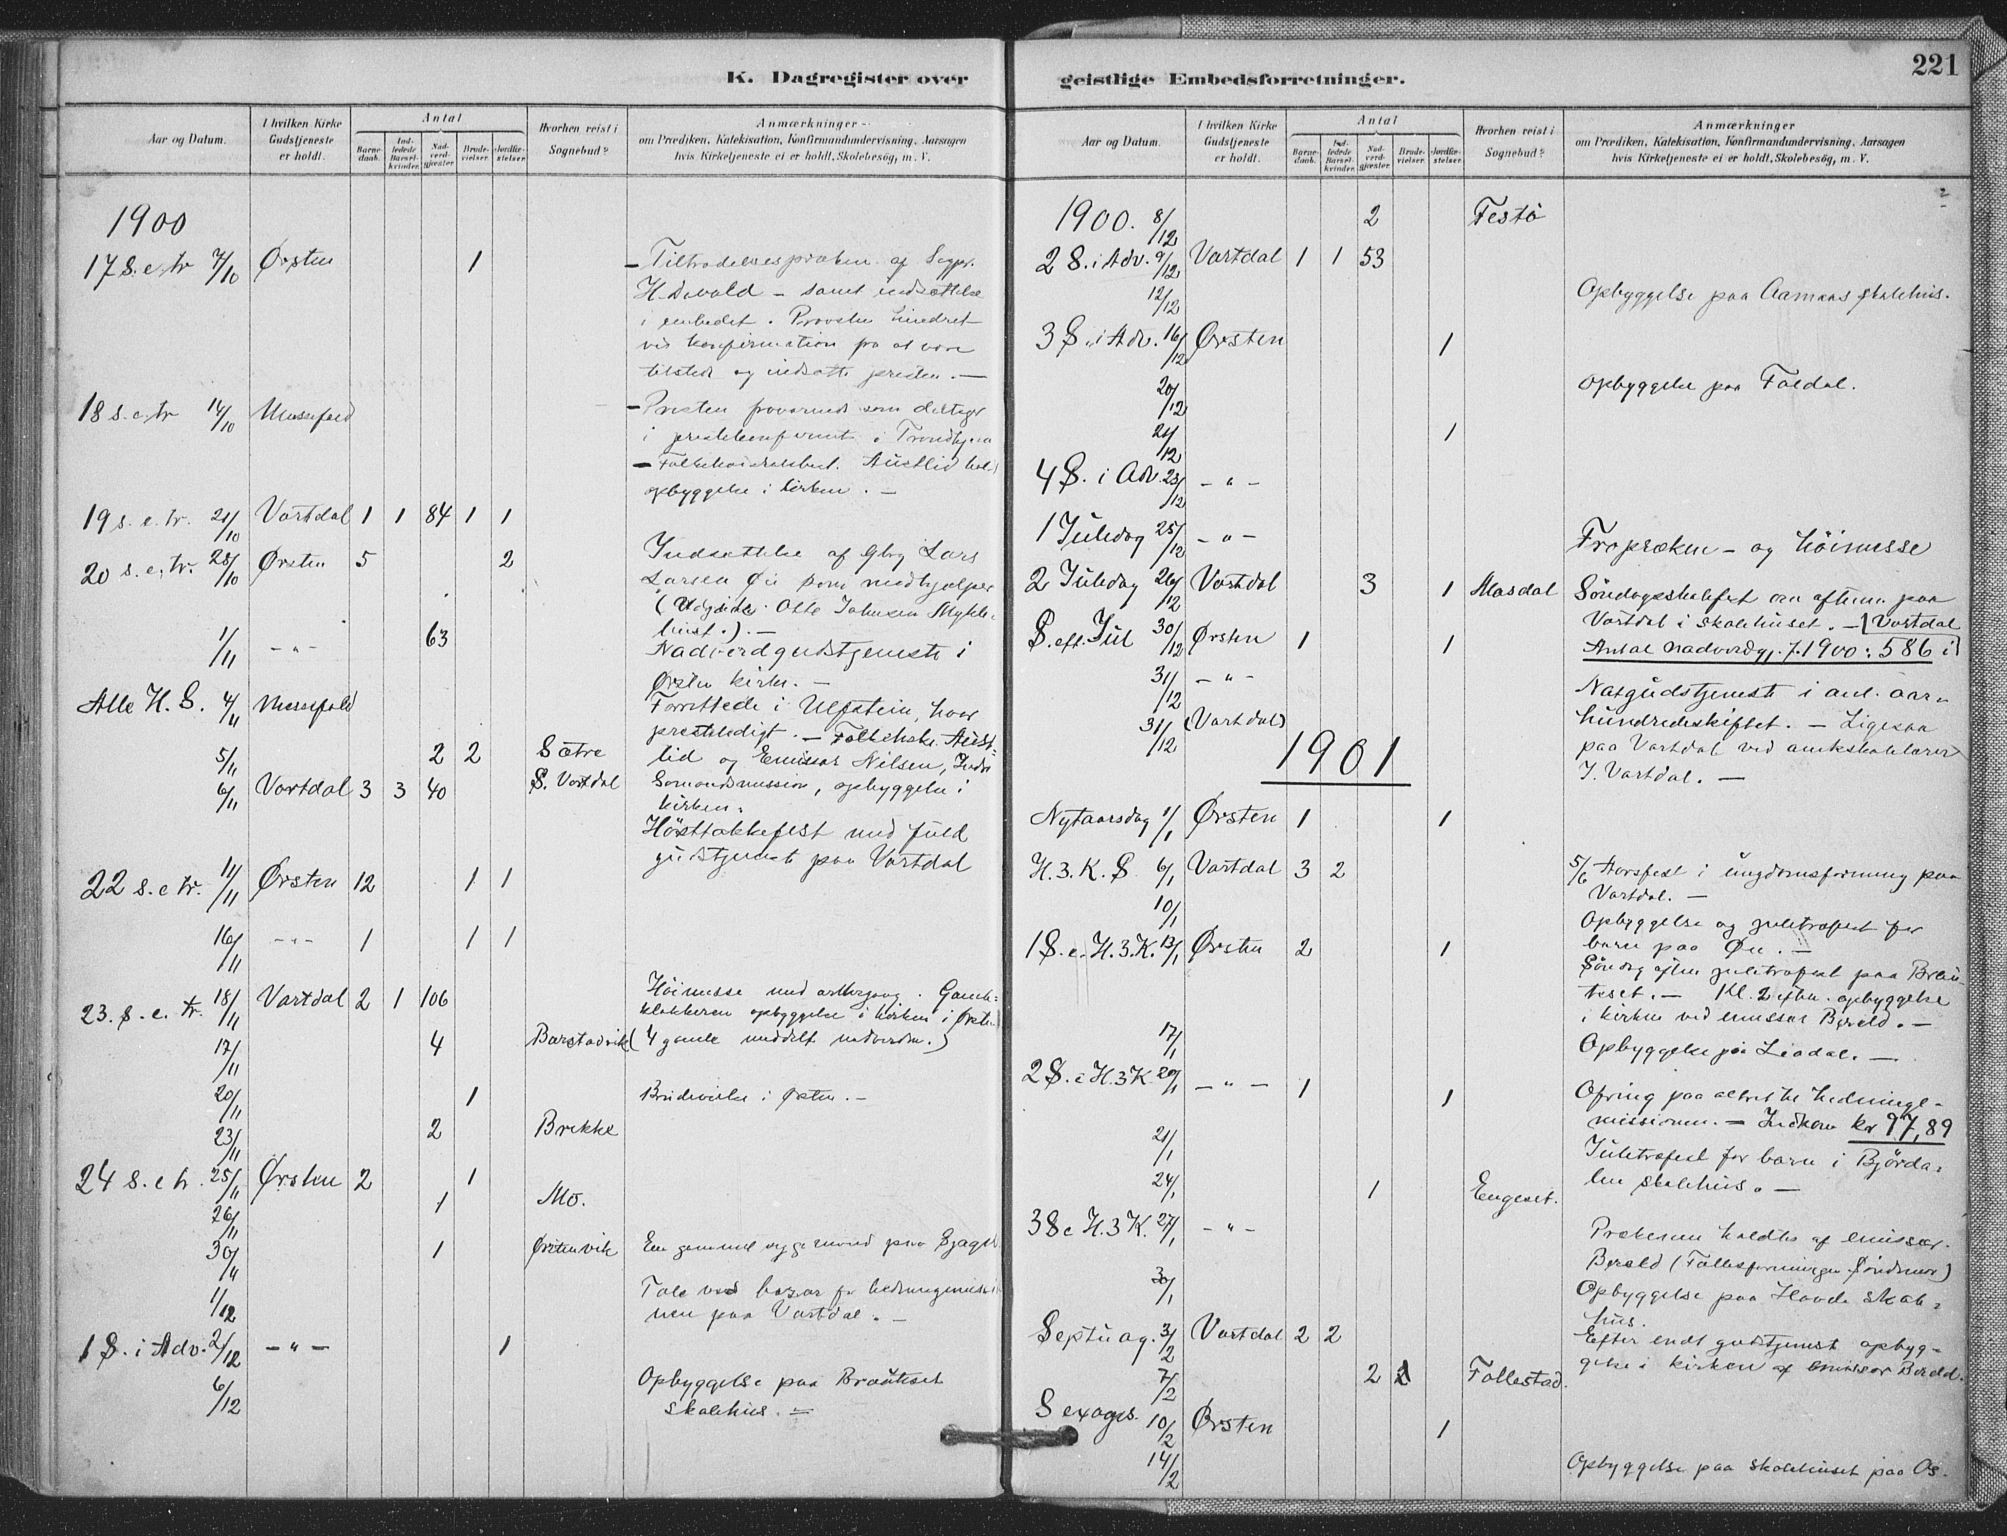 K. Dagregister over
Aar og Datum.
I hvilken Kirke Gudstjeneste er holdt.
Antal
Barnedaab.
Indledede Barselkvinder.
Nadverdgjester.
Brudevielser.
Jordfæstelser.
Hvorhen reist i Sognebud?
Anmærkninger
om Prædiken, Katekisation, Konfirmandundervisning, Aarsagen
hvis Kirketjeneste ei er holdt, Skolebesøg, m. V.
1900
17 S. e. tr 7/10 Ørsten 1 Tiltrædelsespræken af Sogpr.
H. Devold – samt indsættelse
i embedet. Provsten hindret
ved konfirmation fra at være
tilstede og indsætte presten. —
18 s. e. tr 14/10 Messefald – Presten fraværende som deltager
i prestekonferent i Trondhjem
– Austlid hol
opbyggelse i kirken. —
19 s. e. tr. 21/10 Vartdal 1 1 84 1 1
20 s. e. tr. 28/10 Ørsten 5 2 Indsættelse af Gbr Lars
Larsen Øie som medhjælper
(Udgaaede Otte Johnsen Mykle-
bust.). —
1/11 – " – 63 Nadverdgudstjeneste i
Ørsten kirke. —
Alle H. S. 4/11 Messefald Forrettede i Ulfstein, hvor
presteledigt. — Austlid
5/11 2 2 Sætre og Emissær Nilsen, Indre
6/11 Vartdal 3 3 40 S. Vartdal Sømandsmission, opbyggelse i
kirken.
Høsttakkefest med fuld
gudstjeneste paa Vartdal
22 s. e tr. 11/11 Ørsten 12 1 1
16/11 – " – 1 1 1
23. s. e. tr. 18/11 Vartdal 2 1 106 Høimesse med altergang.
opbyggelse i kirken i Ørsten
17/11 4 Barstadvik (4 gamle meddelt nadverden.)
20/11 1 Brudevielse i Ørsten. —
23/11 2 Brekke
24 s. e tr. 25/11 Ørsten 2 1
26/11 1 Mo.
30/11 1 Ørstenvik En gammel sygemand paa
1/12 Tale ved bazar for hedningemissio-
nen paa Vartdal. —
1 S. i Adv. 2/12 – " – 1
6/12 Opbyggelse paa Brauteset
skolehus. —
geistlige Embedsforretninger.
221
Aar og Datum.
I hvilken Kirke Gudstjeneste er holdt.
Antal
Barnedaab.
Indledede Barselkvinder.
Nadverdgjester.
Brudevielser.
Jordfæstelser.
Hvorhen reist i Sognebud?
Anmærkninger
om Prædiken, Katekisation, Konfirmandundervisning, Aarsagen
hvis Kirketjeneste ei er holdt, Skolebesøg, m. V.
1900. 8/12 2 Festø
2 S. i Adv. 9/12 Vartdal 1 1 53
12/12 Opbyggelse paa Aamaas skolehus.
3 S. i Adv. 16/12 Ørsten 1
20/12 Opbyggelse paa Foldal.
21/12 1
4 S. i Adv. 23/12 – " –
1 Juledag 25/12 – " – Fropræken – og høimesse
2 Juledag 26/12 Vartdal 3 1 Masdal Søndagsskolefest om aftenen paa
Vartdal i skolehuset. —
S. eft. Jul 30/12 Ørsten 1 1 Antal nadverdgj. f. 1900: 586 i Vartdal
31/12 – " – Natgudstjeneste i anl. aar-
hundredeskiftet. — Ligesaa
31/12 (Vartdal) paa Vartdal ved amtskolelærer
J. Vartdal. —
1901
Nytaarsdag 1/1 Ørsten 1 1
H. 3. K. S. 6/1 Vartdal 3 2 5/6 Aarsfest i ungdomsforening paa
Vartdal. —
10/1 Opbyggelse og juletræfest for
barn paa Øie. —
1 S. e. H. 3. K. 13/1 Ørsten 2 1 Søndag aften juletræfest paa Brau-
teset. — Kl. 2 efter. opbyggelse
i kirken ved emissær Berald. —
17/1 Opbyggelse paa Liadal. —
2 S. e H. 3 K 20/1 – " – 1 1 Ofring paa alteret til hedninge-
missionen. — Indkom kr 97,89
21/1 Juletræfest for barn i Bjørda-
len skolehus. —
24/1 1 Engeset.
3 S e H. 3 K. 27/1 – " – Prækenen holdtes af emissær
Berald (Fællesforeningen Søndmør)
3/1 Opbyggelse paa Hovde skole-
hus.
Septuag. 3/2 Vartdal 2 2 Efter endt gudstjenest opbyg-
gelse i kirken af emissær Berald.
7/2 2 Follestad.
Sexages. 10/2 Ørsten 1
14/2 Opbyggelse paa skolehuset paa Os.